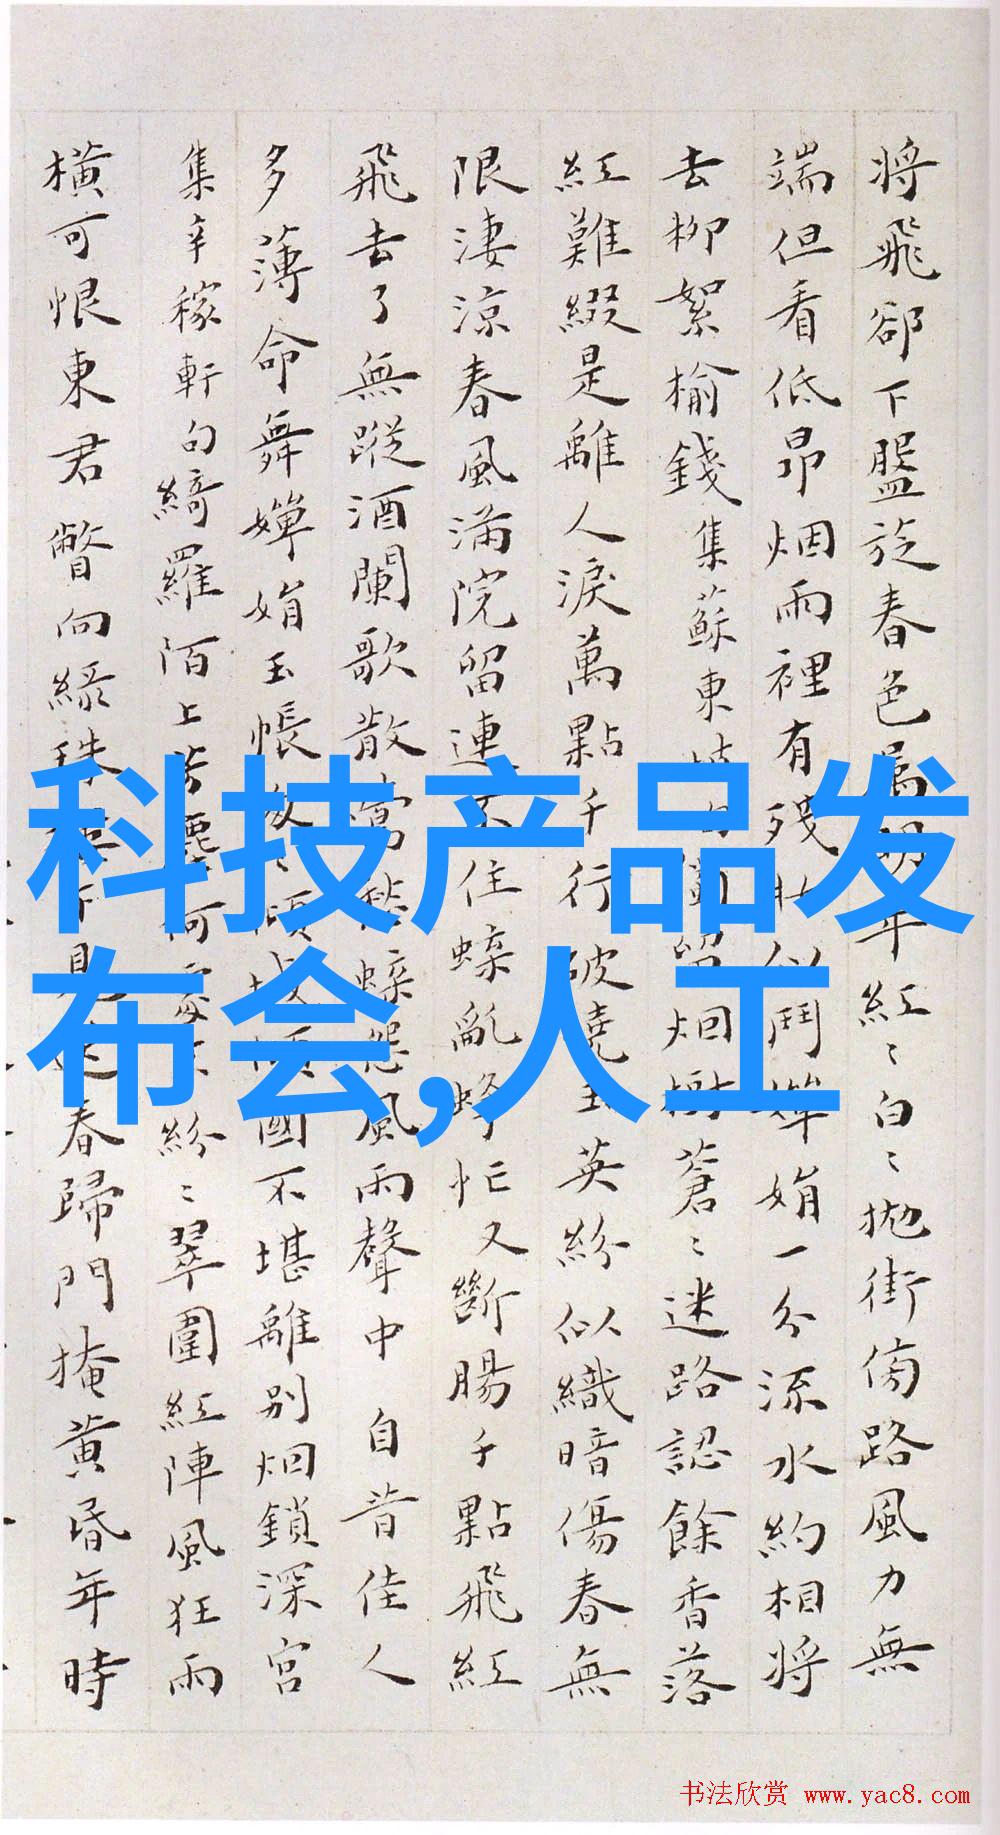 將飛郤下盤旋春色屬年紅〻白〻拋街傍路風力無
端但看低昂烟雨裡有殘粧似鬥嬋娟一分流水約相將
去柳絮榆錢集蘇東坡句烟樹蒼〻迷路認餘香落
紅難綴是離人淚萬點千行破曉玉英紛似織暗傷春無
限淒涼春風滿院留連不住蝶亂蜂忙又斷腸千點飛紅
飛去了無蹤酒闌歌散鶯愁蝶怨風雨聲中 自昔佳人
多薄命舞嬋娟玉帳傾城傾國不堪離別烟鎖深宮
集辛稼軒句綺羅陌上芳塵何處紛〻翠圍紅陣風狂雨
橫可恨東君瞥向綠珠樓下見送春歸門掩黃昏年時
科技产品发
布会,人工
书法欣赏 www.yac8.com